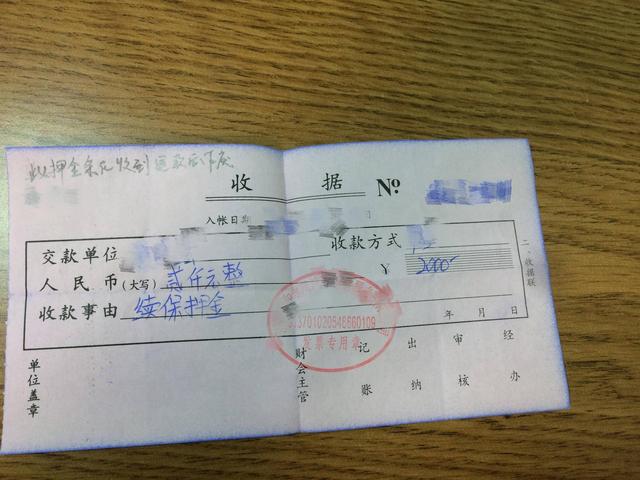 此押金条凭收到退款后作废
收 据 Nº
入帐日期
交款单位 收款方式
人民币(大写) 贰仟元整 ¥ 2000
收款事由 续保押金
年 月 日
二、收据联
发票专用章
单位盖章 财会主管 记账 出纳 审核 经办